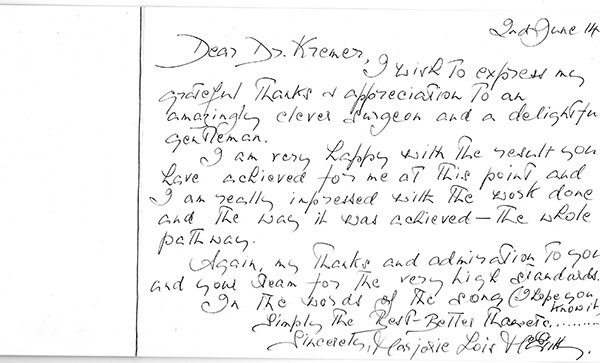 2nd June 14
Dear Dr. Kremer,
I wish to express my
grateful thanks & appreciation to an
amazingly clever surgeon and a delightful
gentleman.
I am very happy with the result you
have achieved for me at this point and
I am really impressed with the work done
and the way it was achieved – the whole
pathway.
Again, my thanks and admiration to you
and your team for the very high standards.
In the words of the song (I hope you
know it)
Simply the Best – Better than etc..........
Sincerely, Marjorie Lois